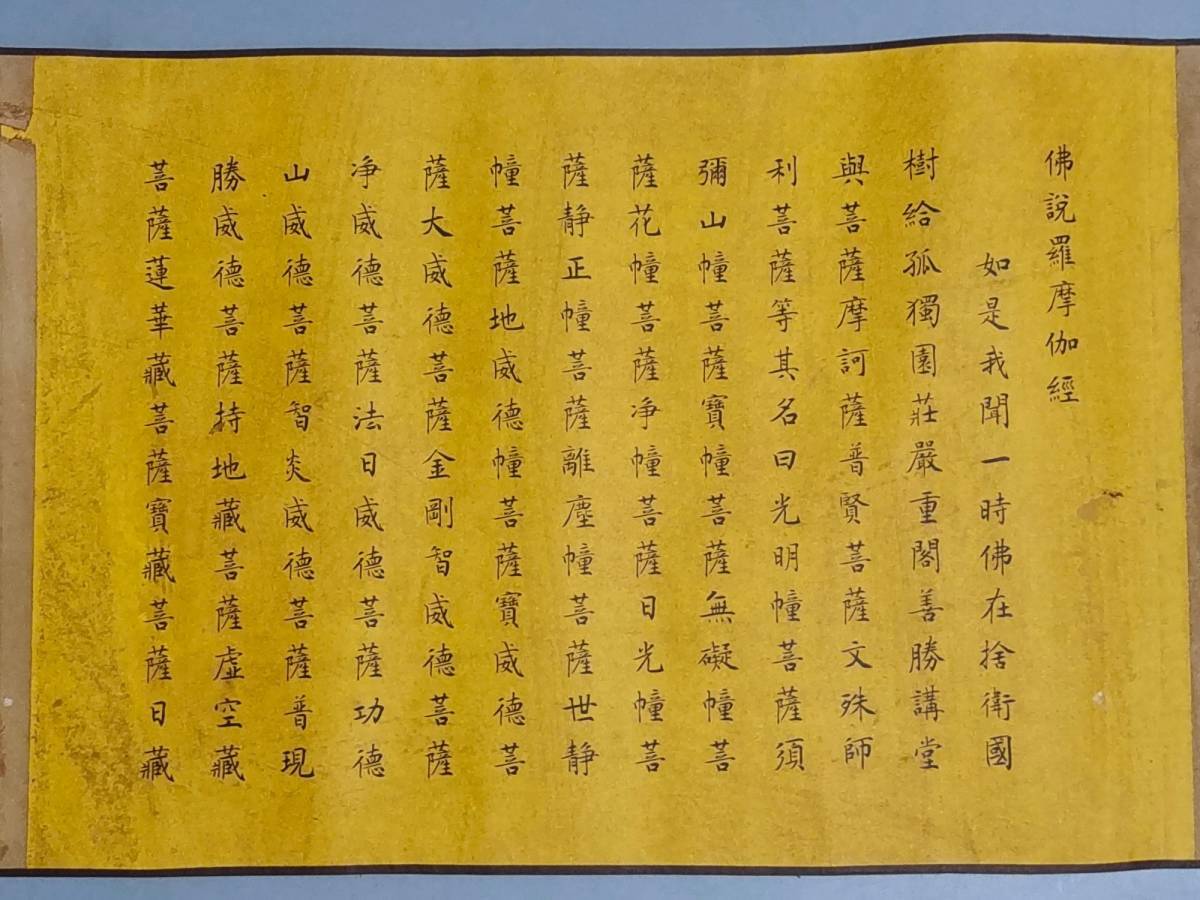 佛說羅摩伽經
如是我聞一時佛在捨衛國
樹給孤獨園莊嚴重閣善勝講堂
與菩薩摩訶薩普賢菩薩文殊師
利菩薩等其名曰光明幢菩薩須
彌山幢菩薩寶幢菩薩無礙幢菩
薩花幢菩薩净幢菩薩日光幢菩
薩靜正幢菩薩離塵幢菩薩世靜
幢菩薩地威德幢菩薩寶威德菩
薩大威德菩薩金剛智威德菩薩
净威德菩薩法日威德菩薩功德
山威德菩薩智炎威德菩薩普現
勝威德菩薩持地藏菩薩虛空藏
菩薩蓮華藏菩薩寶藏菩薩日藏